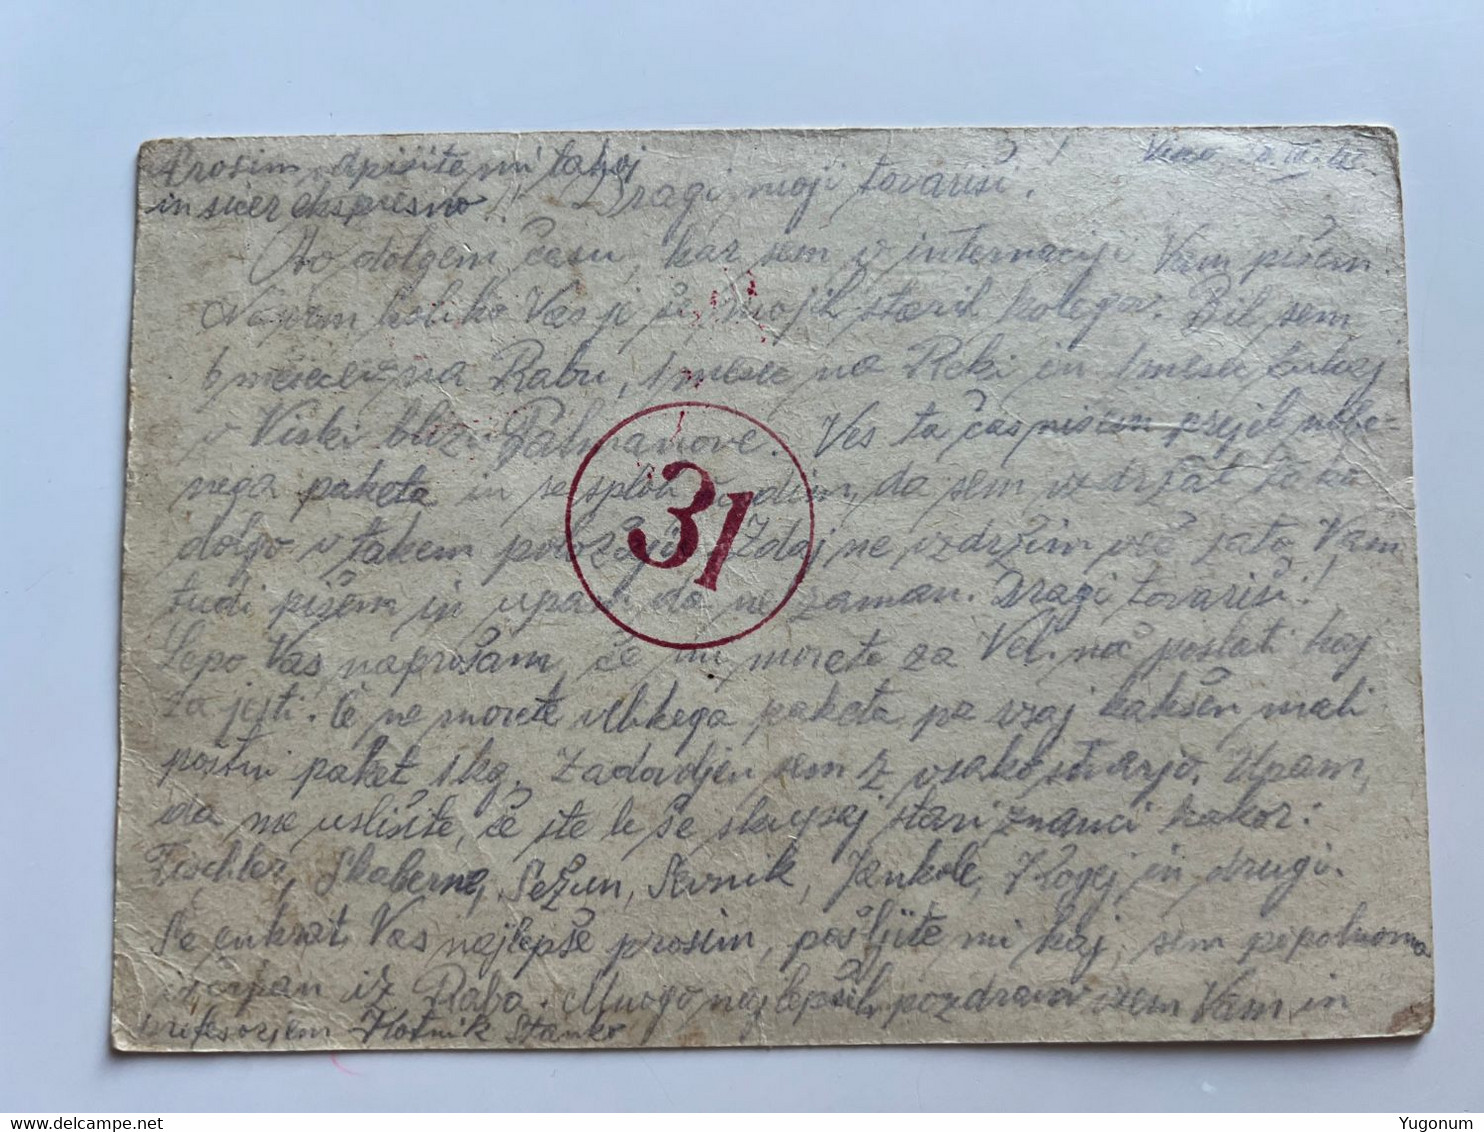 Prosim, dpišite mi takoj
in sicer ekspresno!
Dragi moji tovariši.
Po dolgem času, kar sem v internaciji Vam pišem.
Ne vem koliko Vas je še mojih starih kolegov. Bil sem
6 mesecev na Rabu, 1 mesec na Reki in 1 mesec tukaj
v Viski blizu Palmanove. Ves ta čas nisem prejel nobe-
nega paketa in se sploh čudim, da sem vzdržal tako
dolgo v takem položaju. Zdaj ne vzdržim več zato Vam
tudi pišem in upam, da ne zaman. Dragi tovariši!
Lepo Vas naprošam, če mi morete za Vel. noč poslati kaj
za jesti. Če ne morete velikega paketa pa vsaj kakšen mali
poštni paket 1 kg. Zadovoljen sem z vsako stvarjo. Upam,
da me uslišite, če ste le še skupaj stari znanci kakor:
Tischler, Skaberne, Sežun, Sevnik, Jankole, Klogej in drugi.
Še enkrat Vas najlepše prosim, pošljite mi kaj, sem popolnoma
izčrpan iz Raba. Mnogo najlepših pozdravov vsem Vam in
profesorjem Hotnik Stanko
31
Yugonum